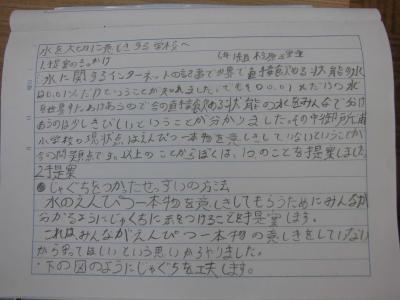 水を大切に花しきする学校へ
1提案のきっかけ
水に関するインターネットの記事で世界で直接飲める状態の水
は0.01%だけということが知れました。でもその0.01%だけの水
を世界中におけあうので今の直接飲める状態の水をみんなで分け
あうのは少しきびしいということが分かりました。その中御所浦
小学校の現状点はえんぴつ一本物を意しきしていないということが
今の問題点です。以上のことからぼくは、1つのことを提案しました。
2提案
●じゃぐちをつかったせっすいの方法
水のえんぴつ一本物を意しきしてもらうためにみんなが
分かるようにじゃぐちに糸をつけることを提案します。
これは、みんながえんぴつ一本物の意しきをしていない
から守ってほしいという思いからやりました。
・下の図のようにじゃぐちを工夫します。